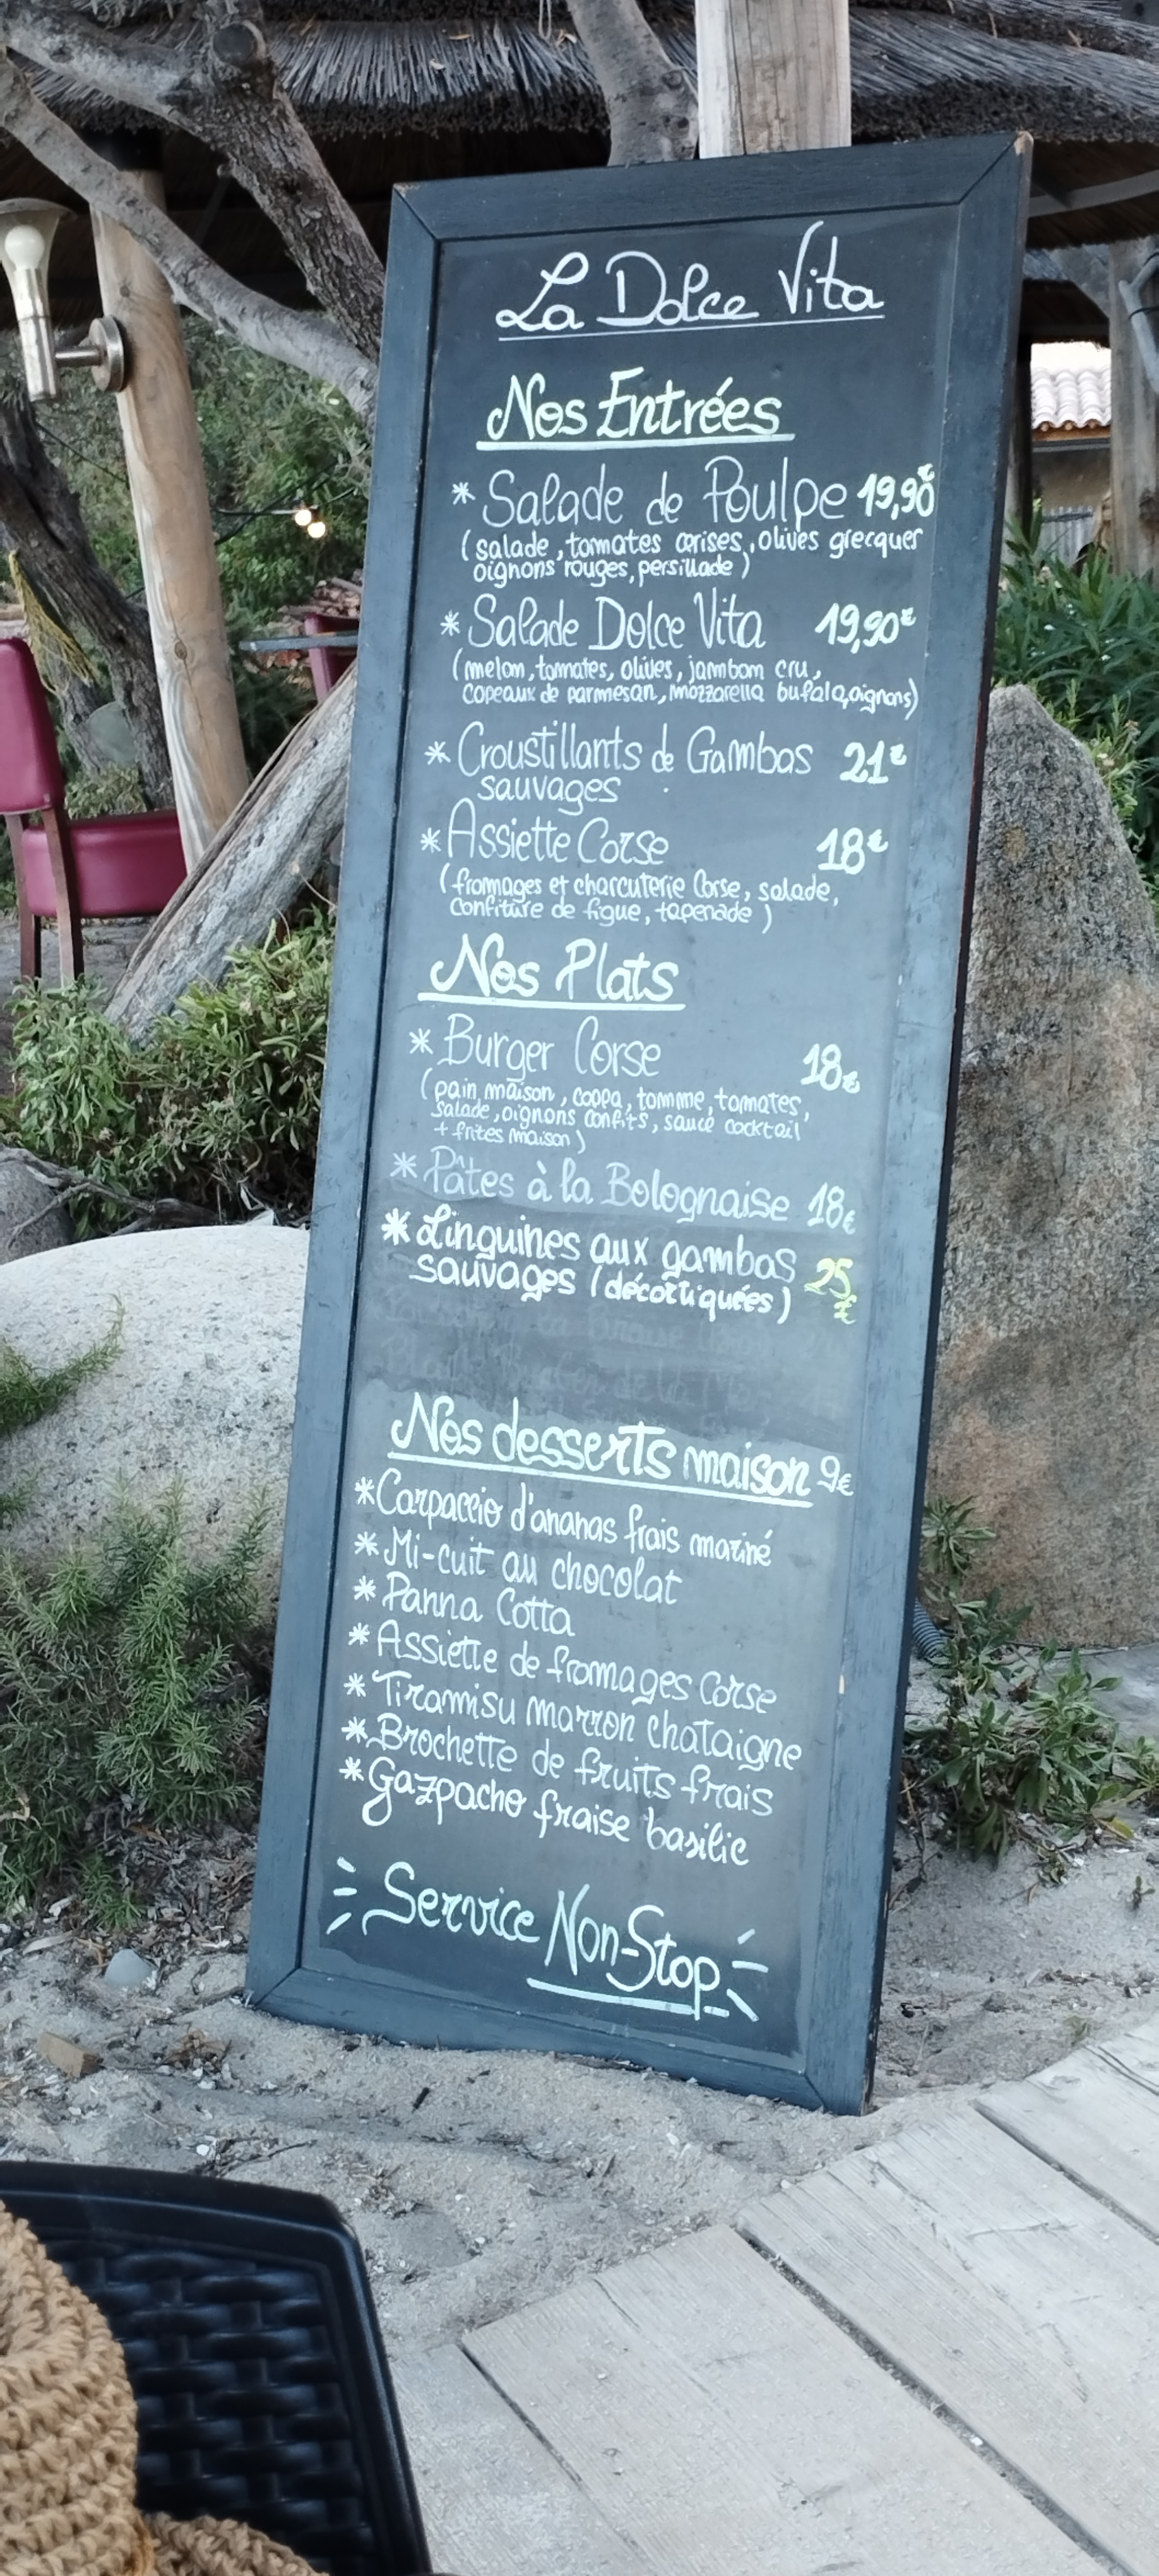 La Dolce Vita
Nos Entrées
* Salade de Poulpe 19,90€
(salade, tomates cerises, olives grecques
oignons rouges, persillade)
* Salade Dolce Vita 19,90€
(melon, tomates, olives, jambon cru,
copeaux de parmesan, mozzarella bufala, oignons)
* Croustillants de Gambas 21€
sauvages
* Assiette Corse 18€
(fromages et charcuterie Corse, salade,
confiture de figue, tapenade)
Nos Plats
* Burger Corse 18€
(pain maison, coppa, tomme, tomates,
salade, oignons confits, sauce cocktail
+ frites maison)
* Pâtes à la Bolognaise 18€
* Linguines aux gambas 25€
sauvages (décortiquées)
Nos desserts maison 9€
* Carpaccio d'ananas frais mariné
* Mi-cuit au chocolat
* Panna Cotta
* Assiette de fromages Corse
* Tiramisu marron chataigne
* Brochette de fruits frais
* Gazpacho fraise basilic
Service Non-Stop